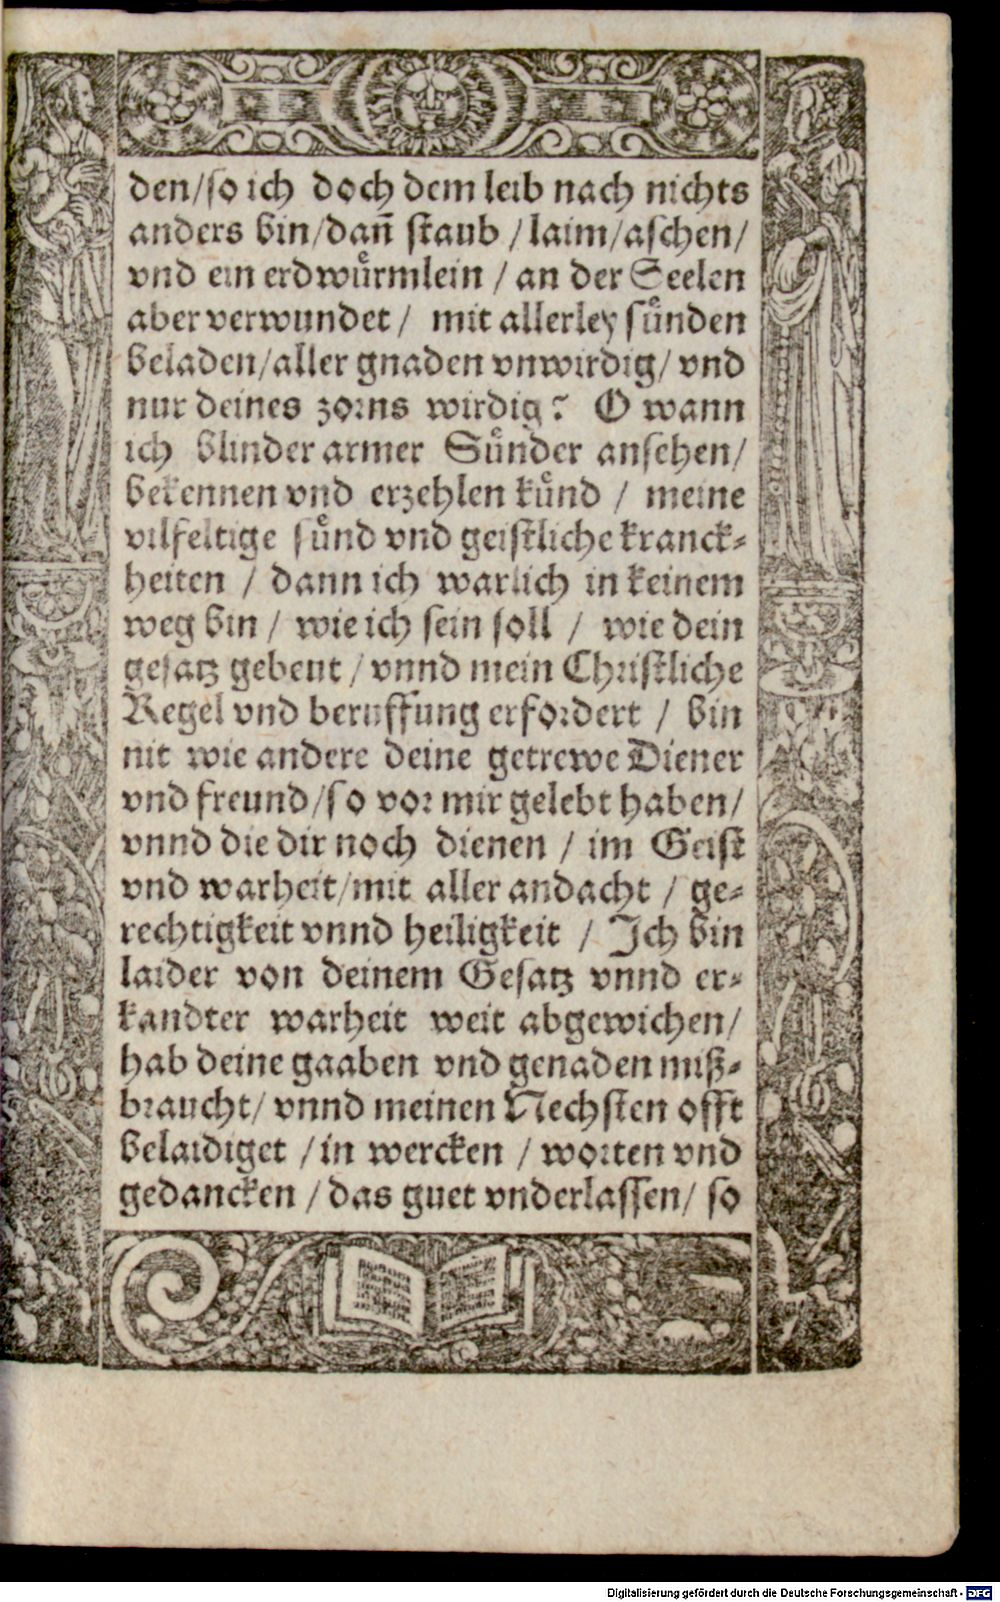 den/so ich doch dem leib nach nichts
anders bin/dañ staub / laim/aschen/
vnd ein erdwuͤrmlein / an der Seelen
aber verwundet / mit allerley suͤnden
beladen/aller gnaden vnwirdig/ vnd
nur deines zorns wirdig? O wann
ich blinder armer Suͤnder ansehen/
bekennen vnd erzehlen kuͤnd / meine
vilfeltige suͤnd vnd geistliche kranck-
heiten / dann ich warlich in keinem
weg bin / wie ich sein soll / wie dein
gesatz gebeut / vnnd mein Christliche
Regel vnd beruffung erfordert / bin
nit wie andere deine getrewe Diener
vnd freund/so vor mir gelebt haben/
vnnd die dir noch dienen / im Geist
vnd warheit/mit aller andacht / ge-
rechtigkeit vnnd heiligkeit / Ich bin
laider von deinem Gesatz vnnd er-
kandter warheit weit abgewichen/
hab deine gaaben vnd genaden miß-
braucht/ vnnd meinen Nechsten offt
belaidiget / in wercken / worten vnd
gedancken / das guet vnderlassen/ so
Digitalisierung gefördert durch die Deutsche Forschungsgemeinschaft - DFG